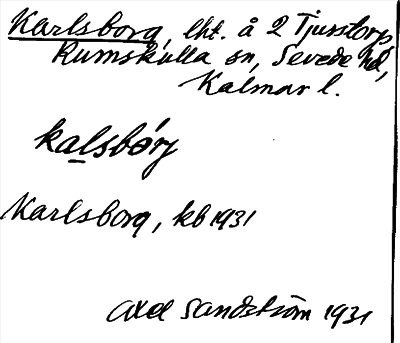 Karlsborg, lht. å 2 Tjurstorp
Rumskulla sn, Sevede hd,
Kalmar l.
kalsbórj
Karlsborg, kb 1931
Axel Sandström 1931